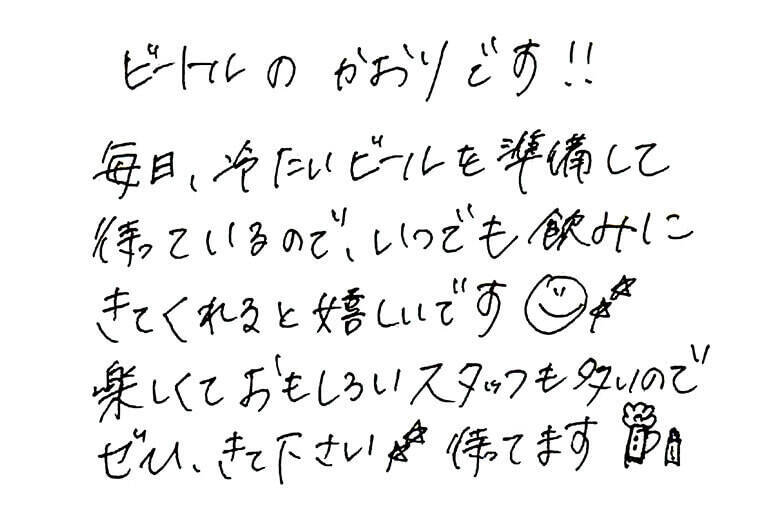 ビートルの かおりです!!
毎日、冷たいビールを準備して
待っているので、いつでも飲みに
きてくれると嬉しいです
楽しくておもしろいスタッフも多いので
ぜひ、きて下さい 待ってます